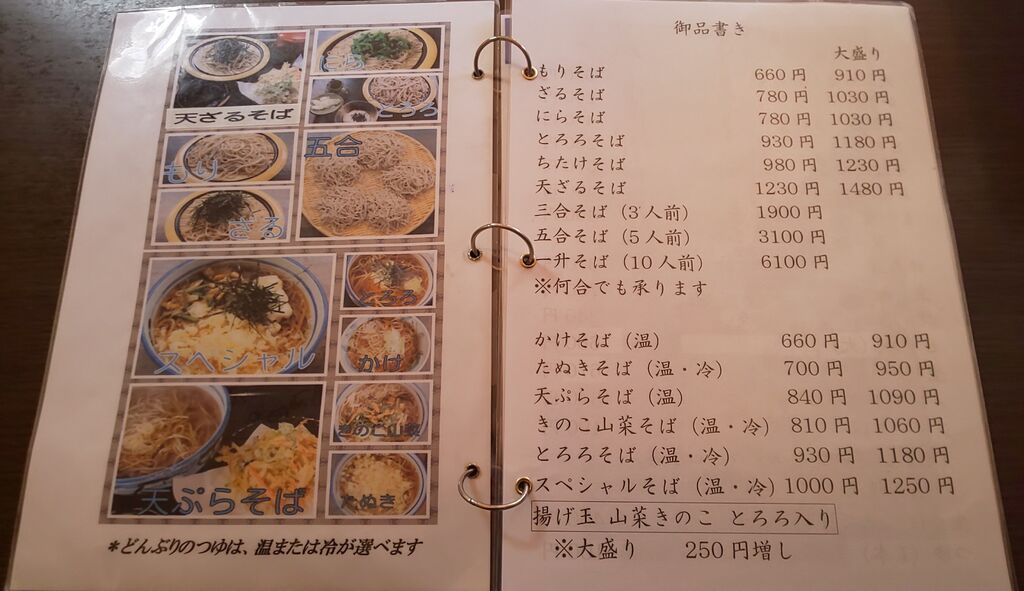 にら
天ざるそば
とろろ
もり
五合
ざる
スペシャル
とろろ
かけ
きのこ山菜
天ぷらそば
たぬき
*どんぶりのつゆは、温または冷が選べます
御品書き
大盛り
もりそば 660 円 910 円
ざるそば 780 円 1030 円
にらそば 780 円 1030 円
とろろそば 930 円 1180 円
ちたけそば 980 円 1230 円
天ざるそば 1230 円 1480 円
三合そば（3 人前） 1900 円
五合そば（5 人前） 3100 円
一升そば（10 人前） 6100 円
※何合でも承ります
かけそば（温） 660 円 910 円
たぬきそば（温・冷） 700 円 950 円
天ぷらそば（温） 840 円 1090 円
きのこ山菜そば（温・冷） 810 円 1060 円
とろろそば（温・冷） 930 円 1180 円
スペシャルそば（温・冷）1000 円 1250 円
揚げ玉 山菜きのこ とろろ入り
※大盛り 250 円増し